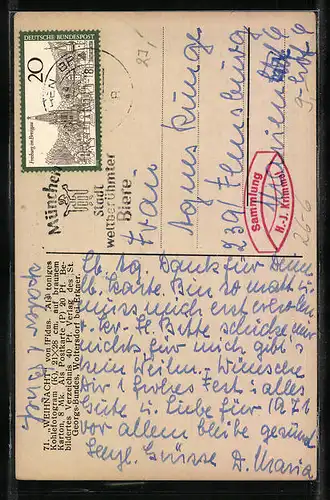 DEUTSCHE BUNDESPOST
20
Freiburg im Breisgau
München
Stadt
weltberühmter
Biere
Frau
Agnes Runge
239 Flensburg
Sammlung
H.-J.
26-6
71. „WEIHNACHT“ von Fidus. Als toniges
Kohlefotogram (K), 21×28 cm., auf braunem
Karton 8 Mk. Als Postkarte (P) 20 Pf. Be-
bildertes Verzeichnis 40 Pf. Verlag des St.
Georgs-Bundes, Woltersdorf bei Erkner.
Lb. Ag. Dank für Deine
lb. Karte. Bin so matt u.
muss mich erst erholen
Bitte schicke mir
nichts für mich gibt's
kein Weihn. Wünsche
Dir 1 frohes Fest u. alles
Gute u. Liebe für 1971
vor allem bleibe gesund
Herzl. Grüsse D. Maria